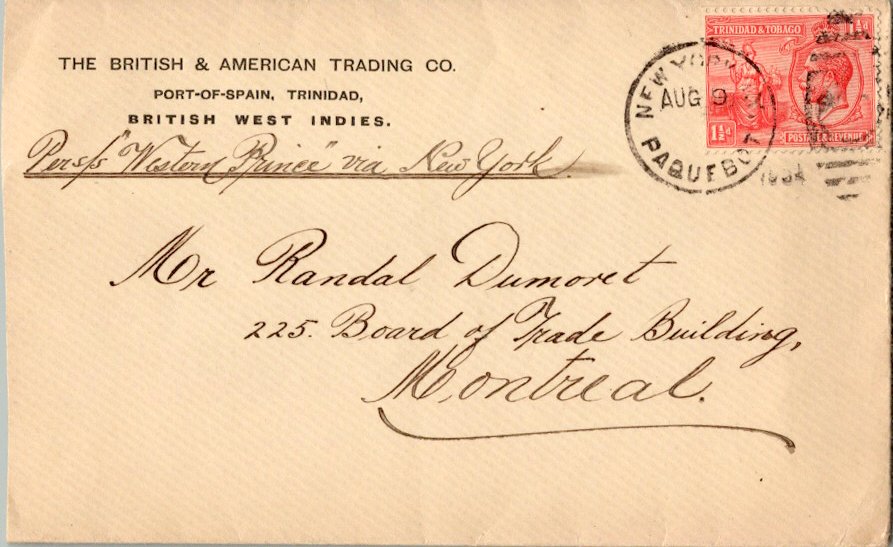 THE BRITISH & AMERICAN TRADING CO.
PORT-OF-SPAIN, TRINIDAD,
BRITISH WEST INDIES.
Per s/s "Western Prince" via New York.
TRINIDAD & TOBAGO 1½d
1½d POSTAGE & REVENUE
NEW YORK
AUG 9
PAQUEBOT
1934
Mr Randal Dumoret
225. Board of Trade Building,
Montreal.